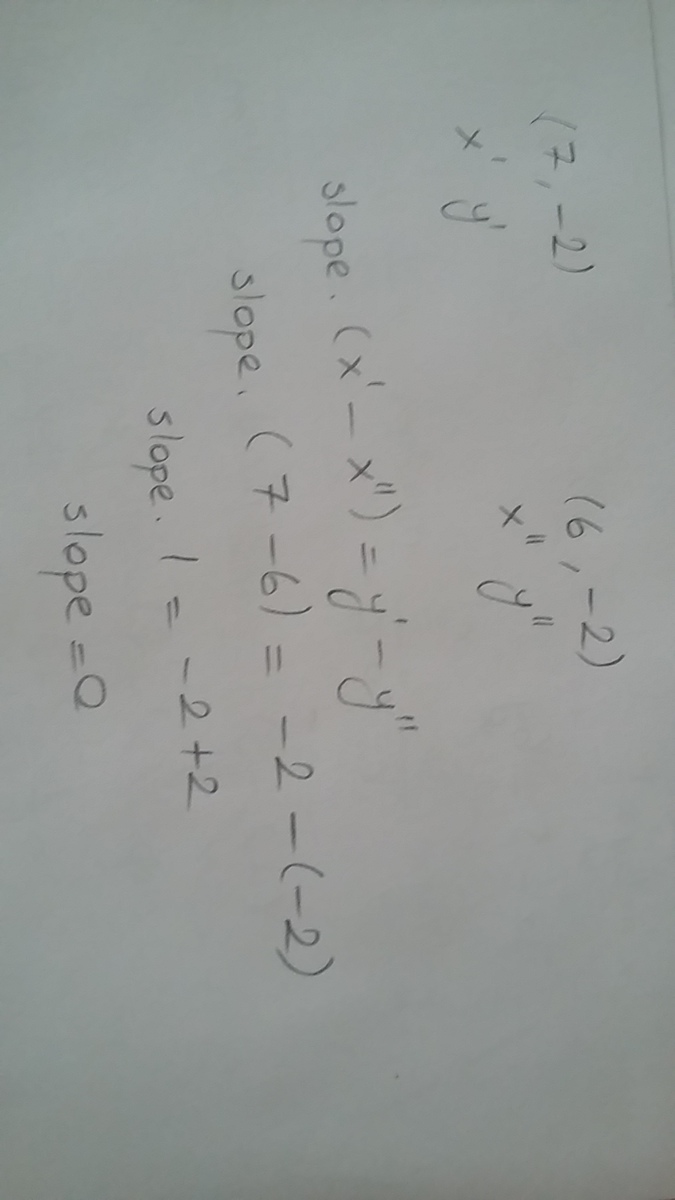 (7, -2) (6, -2)
x' y' x" y"
slope. (x' - x") = y' - y"
slope. (7 - 6) = -2 - (-2)
slope. 1 = -2 + 2
slope = 0